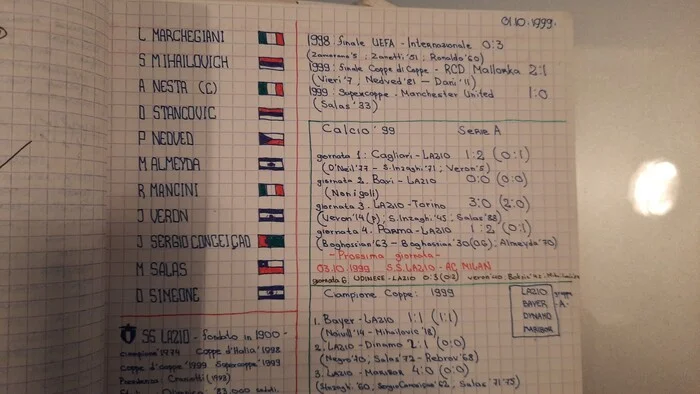 L MARCHEGIANI
S MIHAILOVICH
A NESTA (C)
D STANCOVIC
P NEDVED
M ALMEYDA
R MANCINI
J VERON
J SERGIO CONCEIÇAO
M SALAS
D SIMEONE
SS LAZIO - fondato in 1900 -
campione'1974 Coppe d'Italia'1998
Coppe d'coppe'1999 Supercoppe'1999
Cragnotti (1998)
83.000
01.10.1999.
1998 finale UEFA - Internazionale 0:3
(Zamorano'5; Zanetti'51; Ronaldo'60)
1999: finale Coppe di Coppe - RCD Mallorka 2:1
(Vieri'7, Nedved'81 - Dani'11)
1999: Supercoppe - Manchester United 1:0
(Salas'33)
Calcio'99 Serie A
giornata 1: Cagliari - LAZIO 1:2 (0:1)
(O'Neil'77 - S.Inzaghi'71; Veron'5)
giornata 2. Bari - LAZIO 0:0 (0:0)
(Non i goli)
giornata 3. LAZIO - Torino 3:0 (2:0)
(Veron'14(p); S.Inzaghi'45; Salas'88)
giornata 4. Parma - LAZIO 1:2 (0:1)
(Boghossian'63 - Boghossian'30(OG); Almeyda'70)
- Prossima giornata -
03.10.1999 S.S.LAZIO - AC MILAN
giornata 6. UDINESE - LAZIO 0:3 (0:2)
Ciampione Coppe: 1999
LAZIO
BAYER
DYNAMO
MARIBOR
gruppo
- A -
1. Bayer - LAZIO 1:1 (1:1)
(Neivill'14 - Mihailovic'18)
2. LAZIO - Dinamo 2:1 (0:0)
(Negro'70; Salas'72 - Rebrov'68)
3. LAZIO - MARIBOR 4:0 (0:0)
(S.Inzaghi'60, Sergio Conceiçao'62, Salas'71'75)